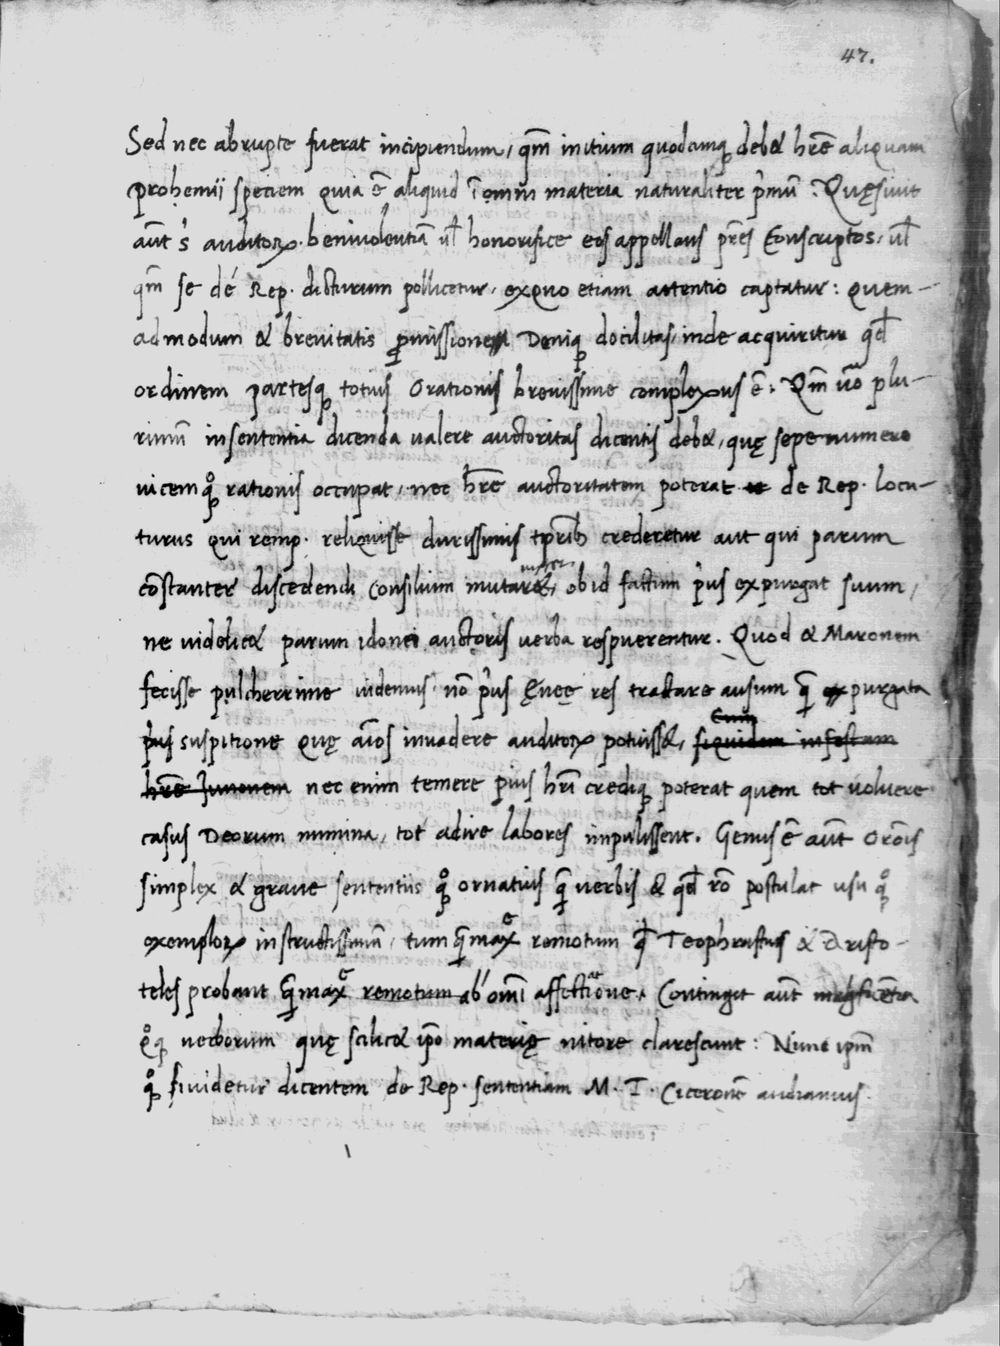 47.
Sed nec abrupte fuerat incipiendum, qm̄ initium quodcunq; debet hr̄e aliquam
prohemii speciem quia ē aliquid ī omni materia naturaliter p̓mū : Quęsiuit
aūt s̓ auditoꝝ. beniuolentiā ul̄ honorifice eos appellans pr̄es Conscriptos, ul̄
qm̄ se de Rep. dicturum pollicetur, ex quo etiam attentio captatur : quem-
admodum & breuitatis ꝓmissione Deniq; docilitas, inde acquiritur qd̄
ordinem partesq; totius Orationis breuissime complexus ē : Qm̄ ūo plu-
rimū in sententia dicenda valere auctoritas dicentis debet, quę sepe numero
uicem qͦq; rationis occupat, nec hr̄e auctoritatem poterat de Rep. locu-
turus qui remp. reliquisse durissimis tp̄rib; crederetur aut qui parum
cōstanter discedendi consilium mutaret, ob id factum p̓us expurgat suum,
ne uidelicet parum idonei auctoris uerba respuerentur. Quod & Maronem
fecisse pulcherrime uidemus, nō p̓us Ęneę res tractare ausum q̄ expurgata
p̓us suspitione quę aīos inuadere auditoꝝ potuisset, siquidem infestam
hr̄e Junonem nec enim temere pius hr̄i crediq; poterat quem tot voluere
casus Deorum numina, tot adire labores impulissent. Genus ē aūt Orōis
simplex & graue sententiis qͦq; ornatius q̄ verbis & qd̄ rō postulat usu qͦq;
exemploꝝ instructissimū, tum q̄maxe remotum qd̄ Teophrastus & Aristo-
teles probant q̄maxe remotum ab omī affectatione. Contingit aūt
qͦq; verborum quę scilicet ip̄o materię nitore clarescunt : Nunc ipm̄
qͦq; si uidetur dicentem de Rep. sententiam M. T. Ciceronē audiamus.